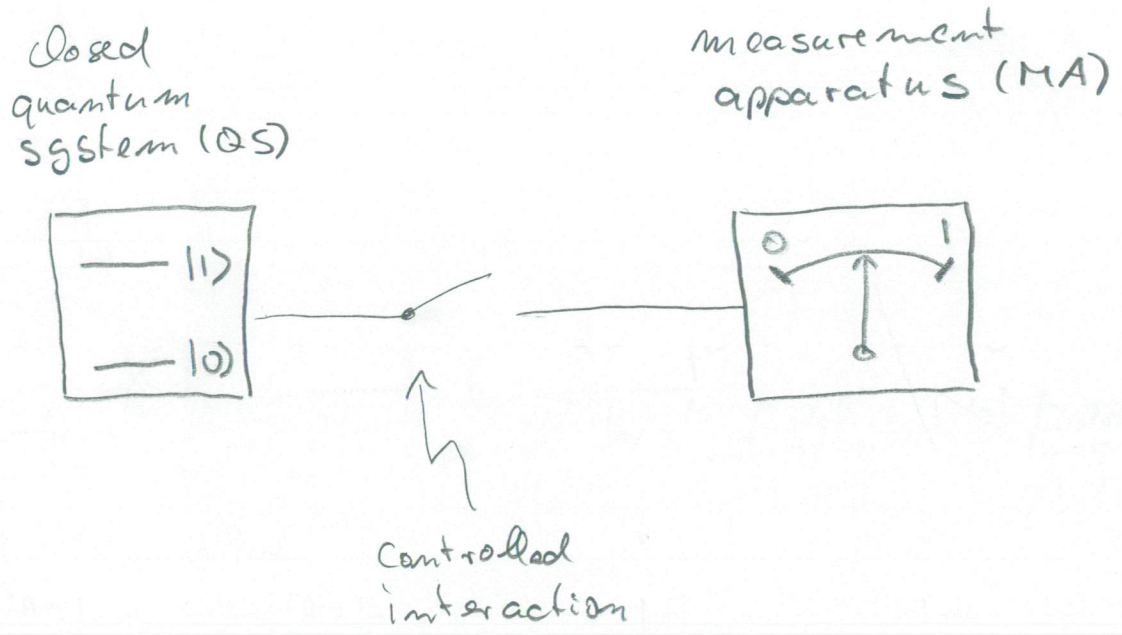 closed
quantum
system (QS)
measurement
apparatus (MA)
|1⟩
|0⟩
0 1
controlled
interaction